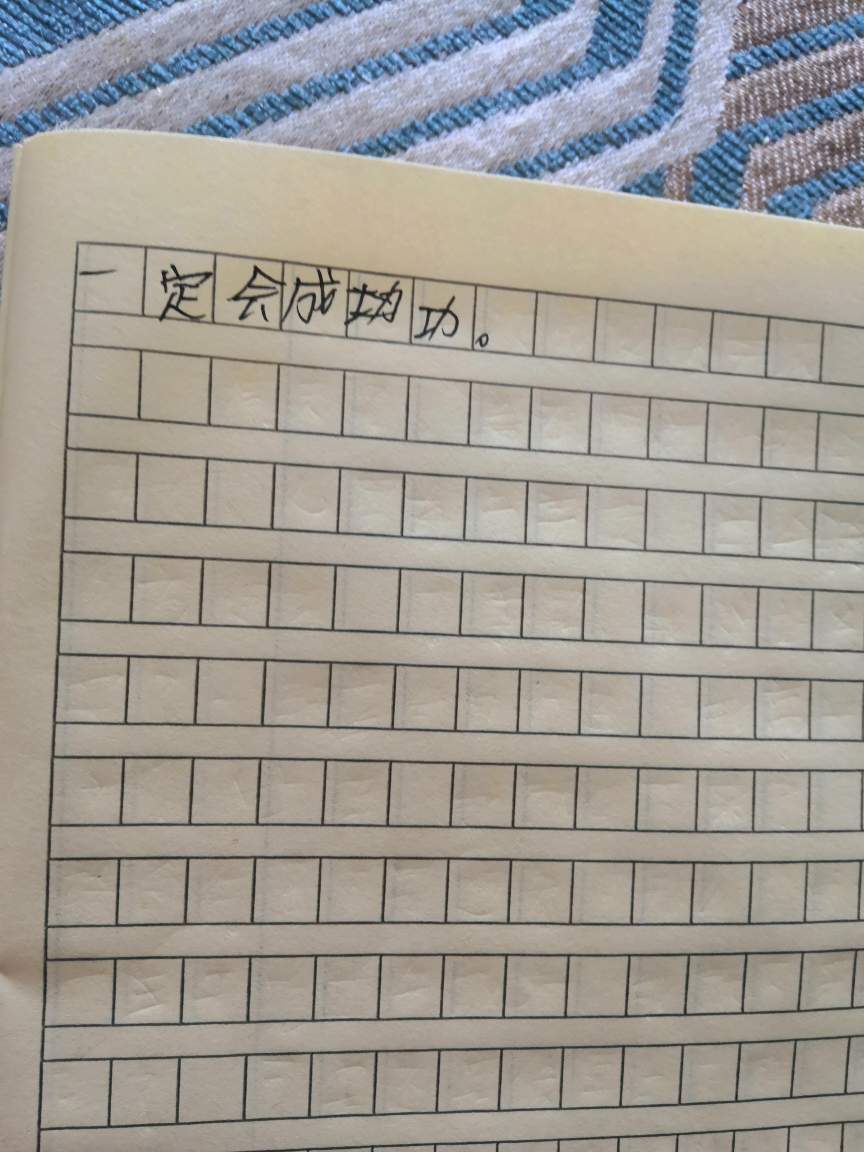 一定会成功功。